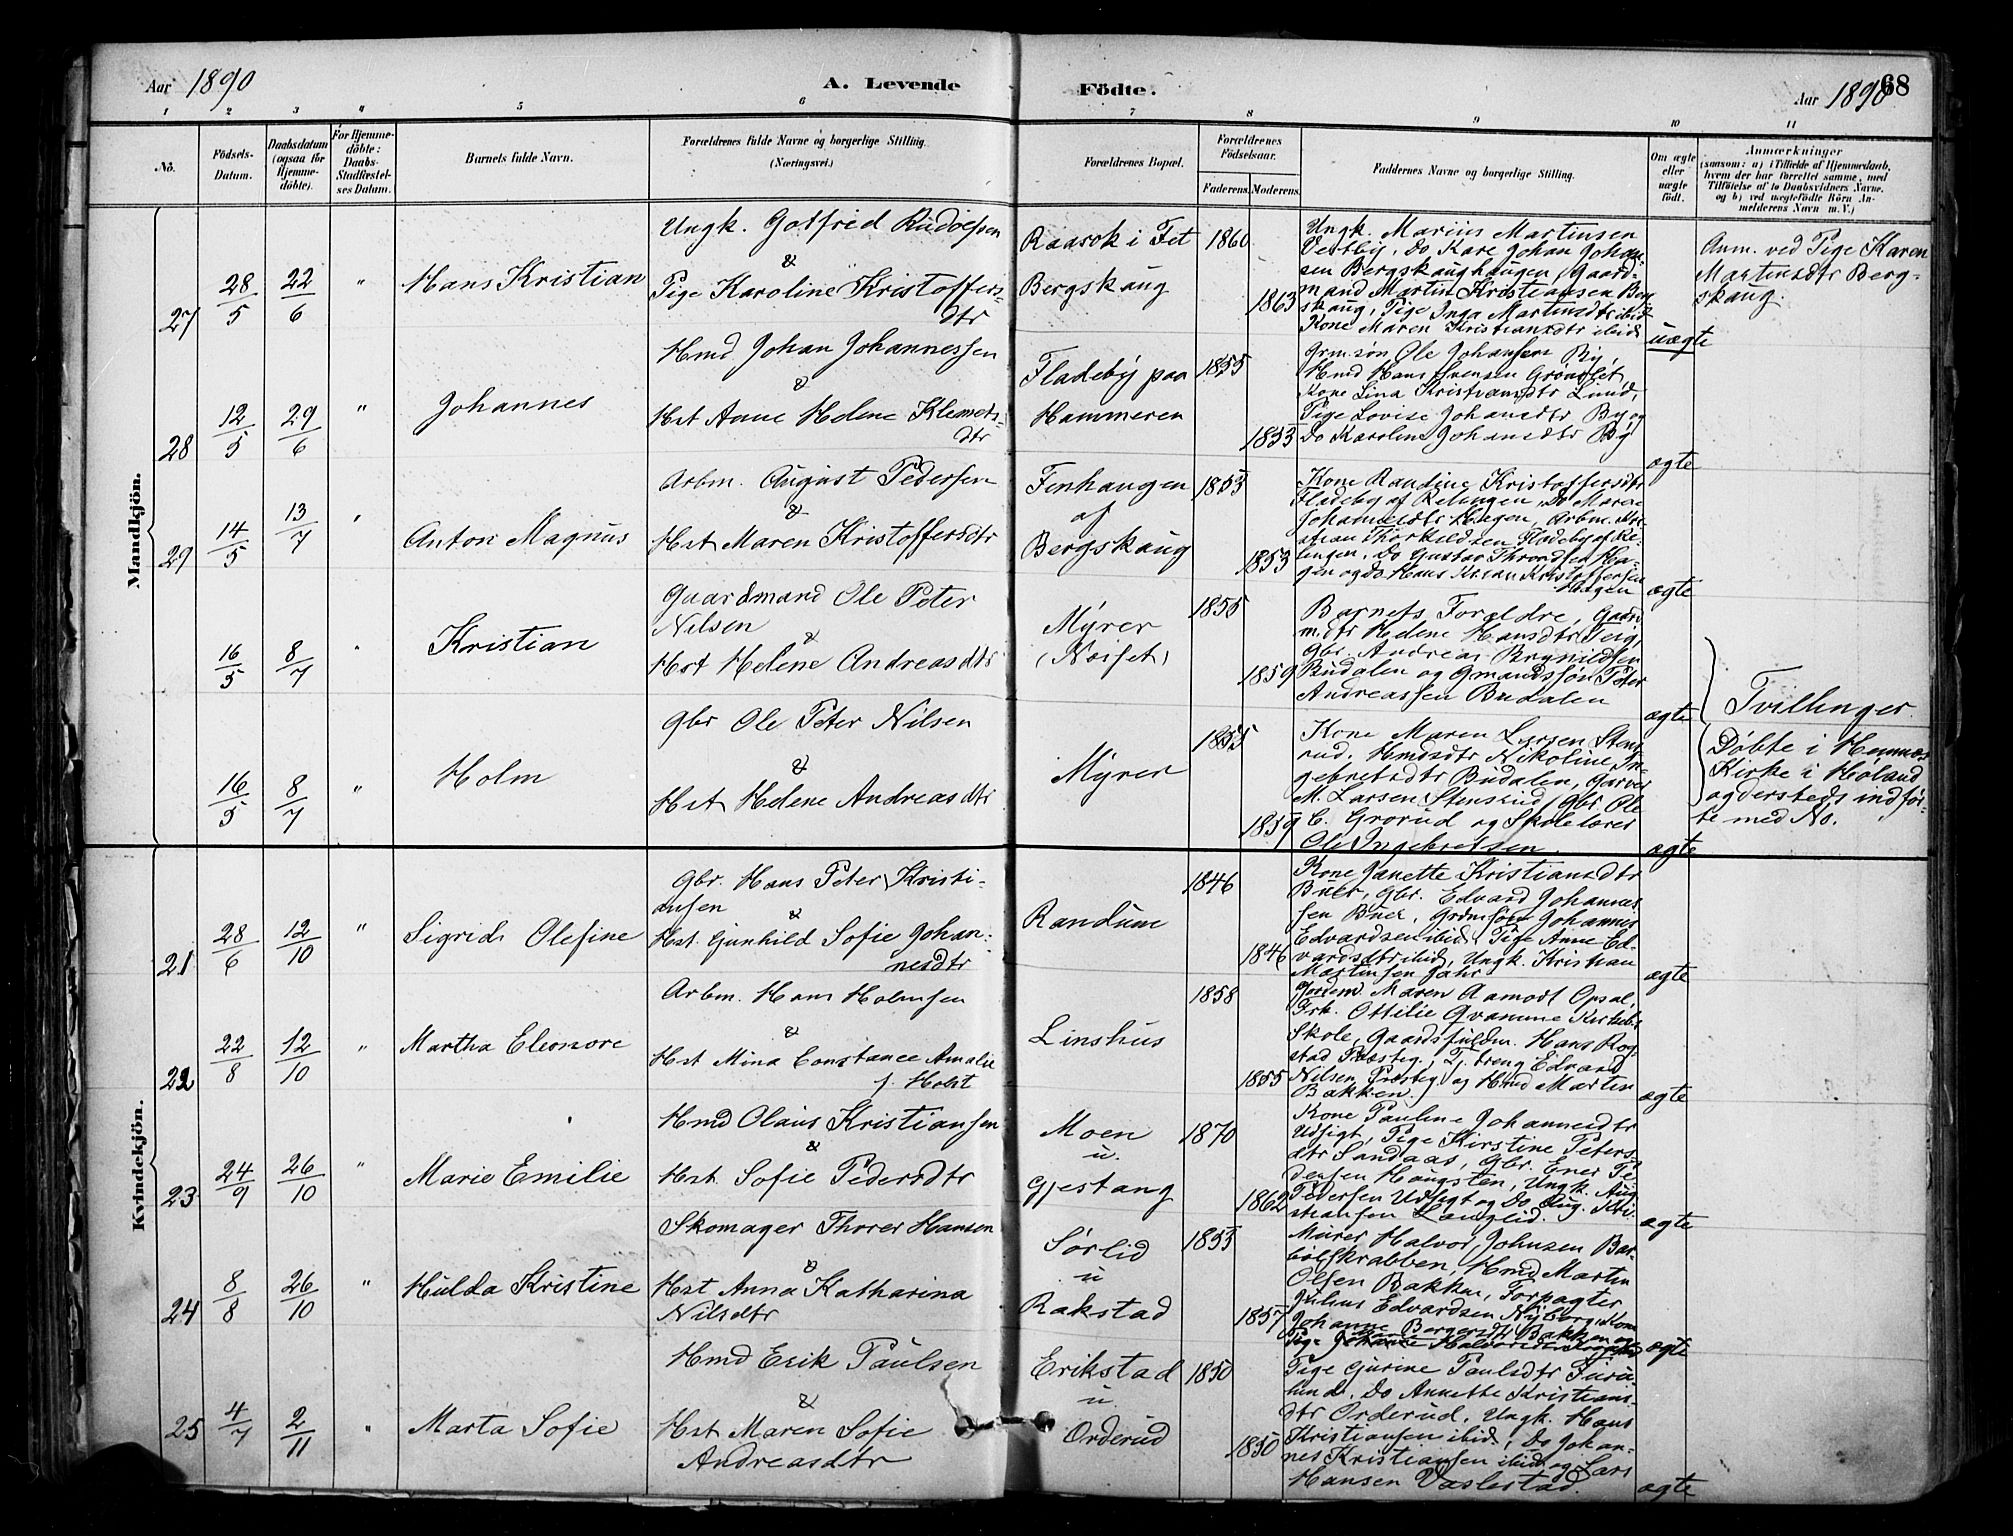 Aar 1890
A. Levende Fødte.
68
Aar 1890
1 2 3 4 5 6 7 8 9 10 11
No.
Födsels-Datum.
Daabsdatum (ogsaa for Hjemme-døbte).
For Hjemme-døbte: Daabs-Stadfæstel-ses Datum.
Barnets fulde Navn.
Forældrenes fulde Navne og borgerlige Stilling (Næringsvei.)
Forældrenes Bopæl.
Forældrenes Födselsaar.
Faderens. Moderens.
Faddernes Navne og borgerlige Stilling.
Om ægte eller uægte født.
Anmærkninger
(saasom: a) i Tilfælde af Hjemmedaab,
hvem der har forrettet samme, med
Tilføielse af to Daabsvidners Navne.
og b) ved uægtefødte Börn An-
melderens Navn m. V.)
Mandkjön.
27
28/5
22/6
"
Hans Kristian
Ungk. Gotfred Rudolfsen
&
Pige Karoline Kristoffers-
dtr
Raasok i Fet
Bergskaug
1860
1863
Ungk. Marius Martinsen
Vestby, Do Kare Johan Johan-
sen Bergskaughaugen, Gaard-
mand Martin Kristiansen Berg-
skaug, Pige Inga Martinsdtr ibid
Kone Maren Kristiansdtr ibid
uægte
Anm. ved Pige Karen
Martinsdtr Berg-
skaug.
28
12/5
29/6
"
Johannes
Hmd Johan Johannessen
&
Hst Anne Helene Klemets-
dtr
Fladeby paa
Hammeren
1855
1853
Grm.søn Ole Johansen By,
Hmd Hans Svensen
Kone Lina Kristiansdtr Lund,
Pige Lovise Johansdtr By og
Do Karoline Johansdtr By
ægte
29
14/5
13/7
"
Anton Magnus
Arbm. August Pedersen
&
Hst Maren Kristoffersdtr
Finhaugen
af
Bergskaug
1853
1853
Kone Randine Kristoffersdtr
Fladeby af Relingen, Do Maren
Johannesdtr Hagen, Arbm. Kri-
stian Thorkildsen Fladeby af Re-
lingen, Do Gustav Throndsen Ha-
gen og Do Hans Kristian Kristoffersen
Hagen
ægte
16/5
8/7
"
Kristian
Gaardmand Ole Peter
Nilsen
&
Hst Helene Andreasdtr
Myrer
(Norset)
1855
1859
Barnets Foreldre, Gaard-
m.dtr Helene Hansdtr Teig,
Gbr. Andreas Brynildsen
Budalen og Gmandssøn Peter
Andreassen Budalen
ægte
Tvillinger
16/5
8/7
"
Holm
Gbr Ole Peter Nilsen
&
Hst Helene Andreasdtr
Myrer
1855
1859
Kone Maren Larsen Stens-
rud, Hmdsdtr Nikoline In-
gebretsdtr Budalen, Garver
M. Larsen Stensrud, Gbr. Ole
C. Grorud og Skolelærer
Ole Ingebretsen.
ægte
Døbte i Hemnes
Kirke i Høland
og dersteds indfør-
te med No.
Kvindekjön.
21
28/6
12/10
"
Sigrid Olefine
Gbr. Hans Peter Kristi-
ansen
&
Hst. Gunhild Sofie Johan-
nesdtr
Randum
1846
1846
Kone Janette Kristiansdtr
Buer, Gbr. Edvard Johannes-
sen Buer, Grdm.søn Johannes
Edvardsen ibid, Pige Anne Ed-
vardsdtr ibid, Ungk. Kristian
Martinsen Jahr
ægte
22
22/8
12/10
"
Martha Eleonore
Arbm. Hans Holmsen
&
Hst Mina Constance Amalie
f. Holst
Linshus
1858
1855
Jordem. Maren Aamodt Opsal,
Frk. Ottilie Qvamme Kirkeb.
Skole, Gaardsfuldm. Hans Rog-
stad Præsteg., Tj.dreng Edvard
Nilsen Præsteg. og Hmd Martin
Bakken.
ægte
23
24/9
26/10
"
Marie Emilie
Hmd Olaus Kristiansen
&
Hst Sofie Pedersdtr
Moen
u.
Gjestang
1870
1862
Kone Pauline Johannesdtr
Udsigt, Pige Kirstine Peters-
dtr Sandaas, Gbr. Ener Pe-
dersen Haugsten, Ungk. Aug.
Pedersen Udsigt og Do Aug. Kri-
stiansen Langlid.
ægte
24
8/8
26/10
"
Hulda Kristine
Skomager Thorer Hansen
&
Hst Anna Katharina
Nilsdtr
Sørlid
u
Rakstad
1853
1857
Murer Halvor Johnsen Bar-
bølskrabben, Hmd Martin
Olsen Bakken, Forpagter
Julius Edvardsen Nyberg, Kone
Johanne Borgersdtr Bakken og
Pige
ægte
25
4/7
2/11
"
Marta Sofie
Hmd Erik Paulsen
&
Hst Maren Sofie
Andreasdtr
Erikstad
u
Orderud
1850
1850
Pige Gurine Paulsdtr Furu-
lund, Do Annette Kristians-
dtr Orderud, Ungk. Hans
Kristiansen ibid, Do Johan-
nes Kristiansen ibid og Lars
Hansen Vaslestad.
ægte